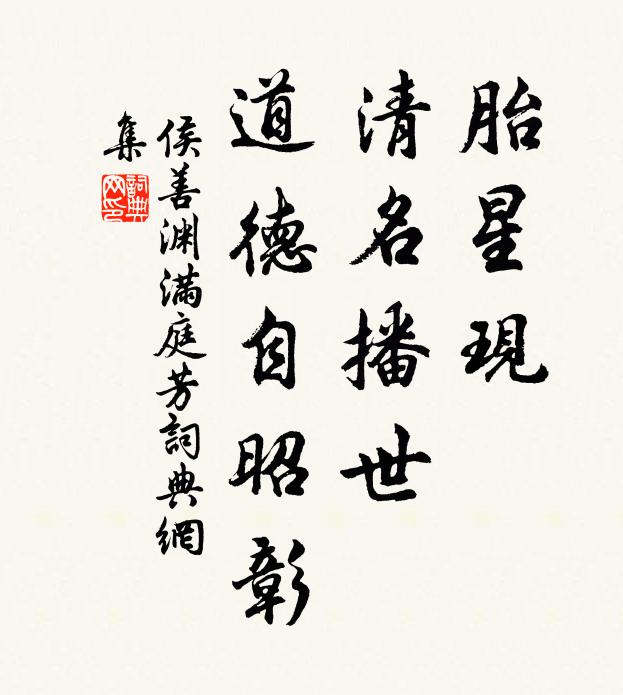 胎星現
清名播世
道德自昭彰
侯善渊滿庭芳詞典網
集
詞典
网印